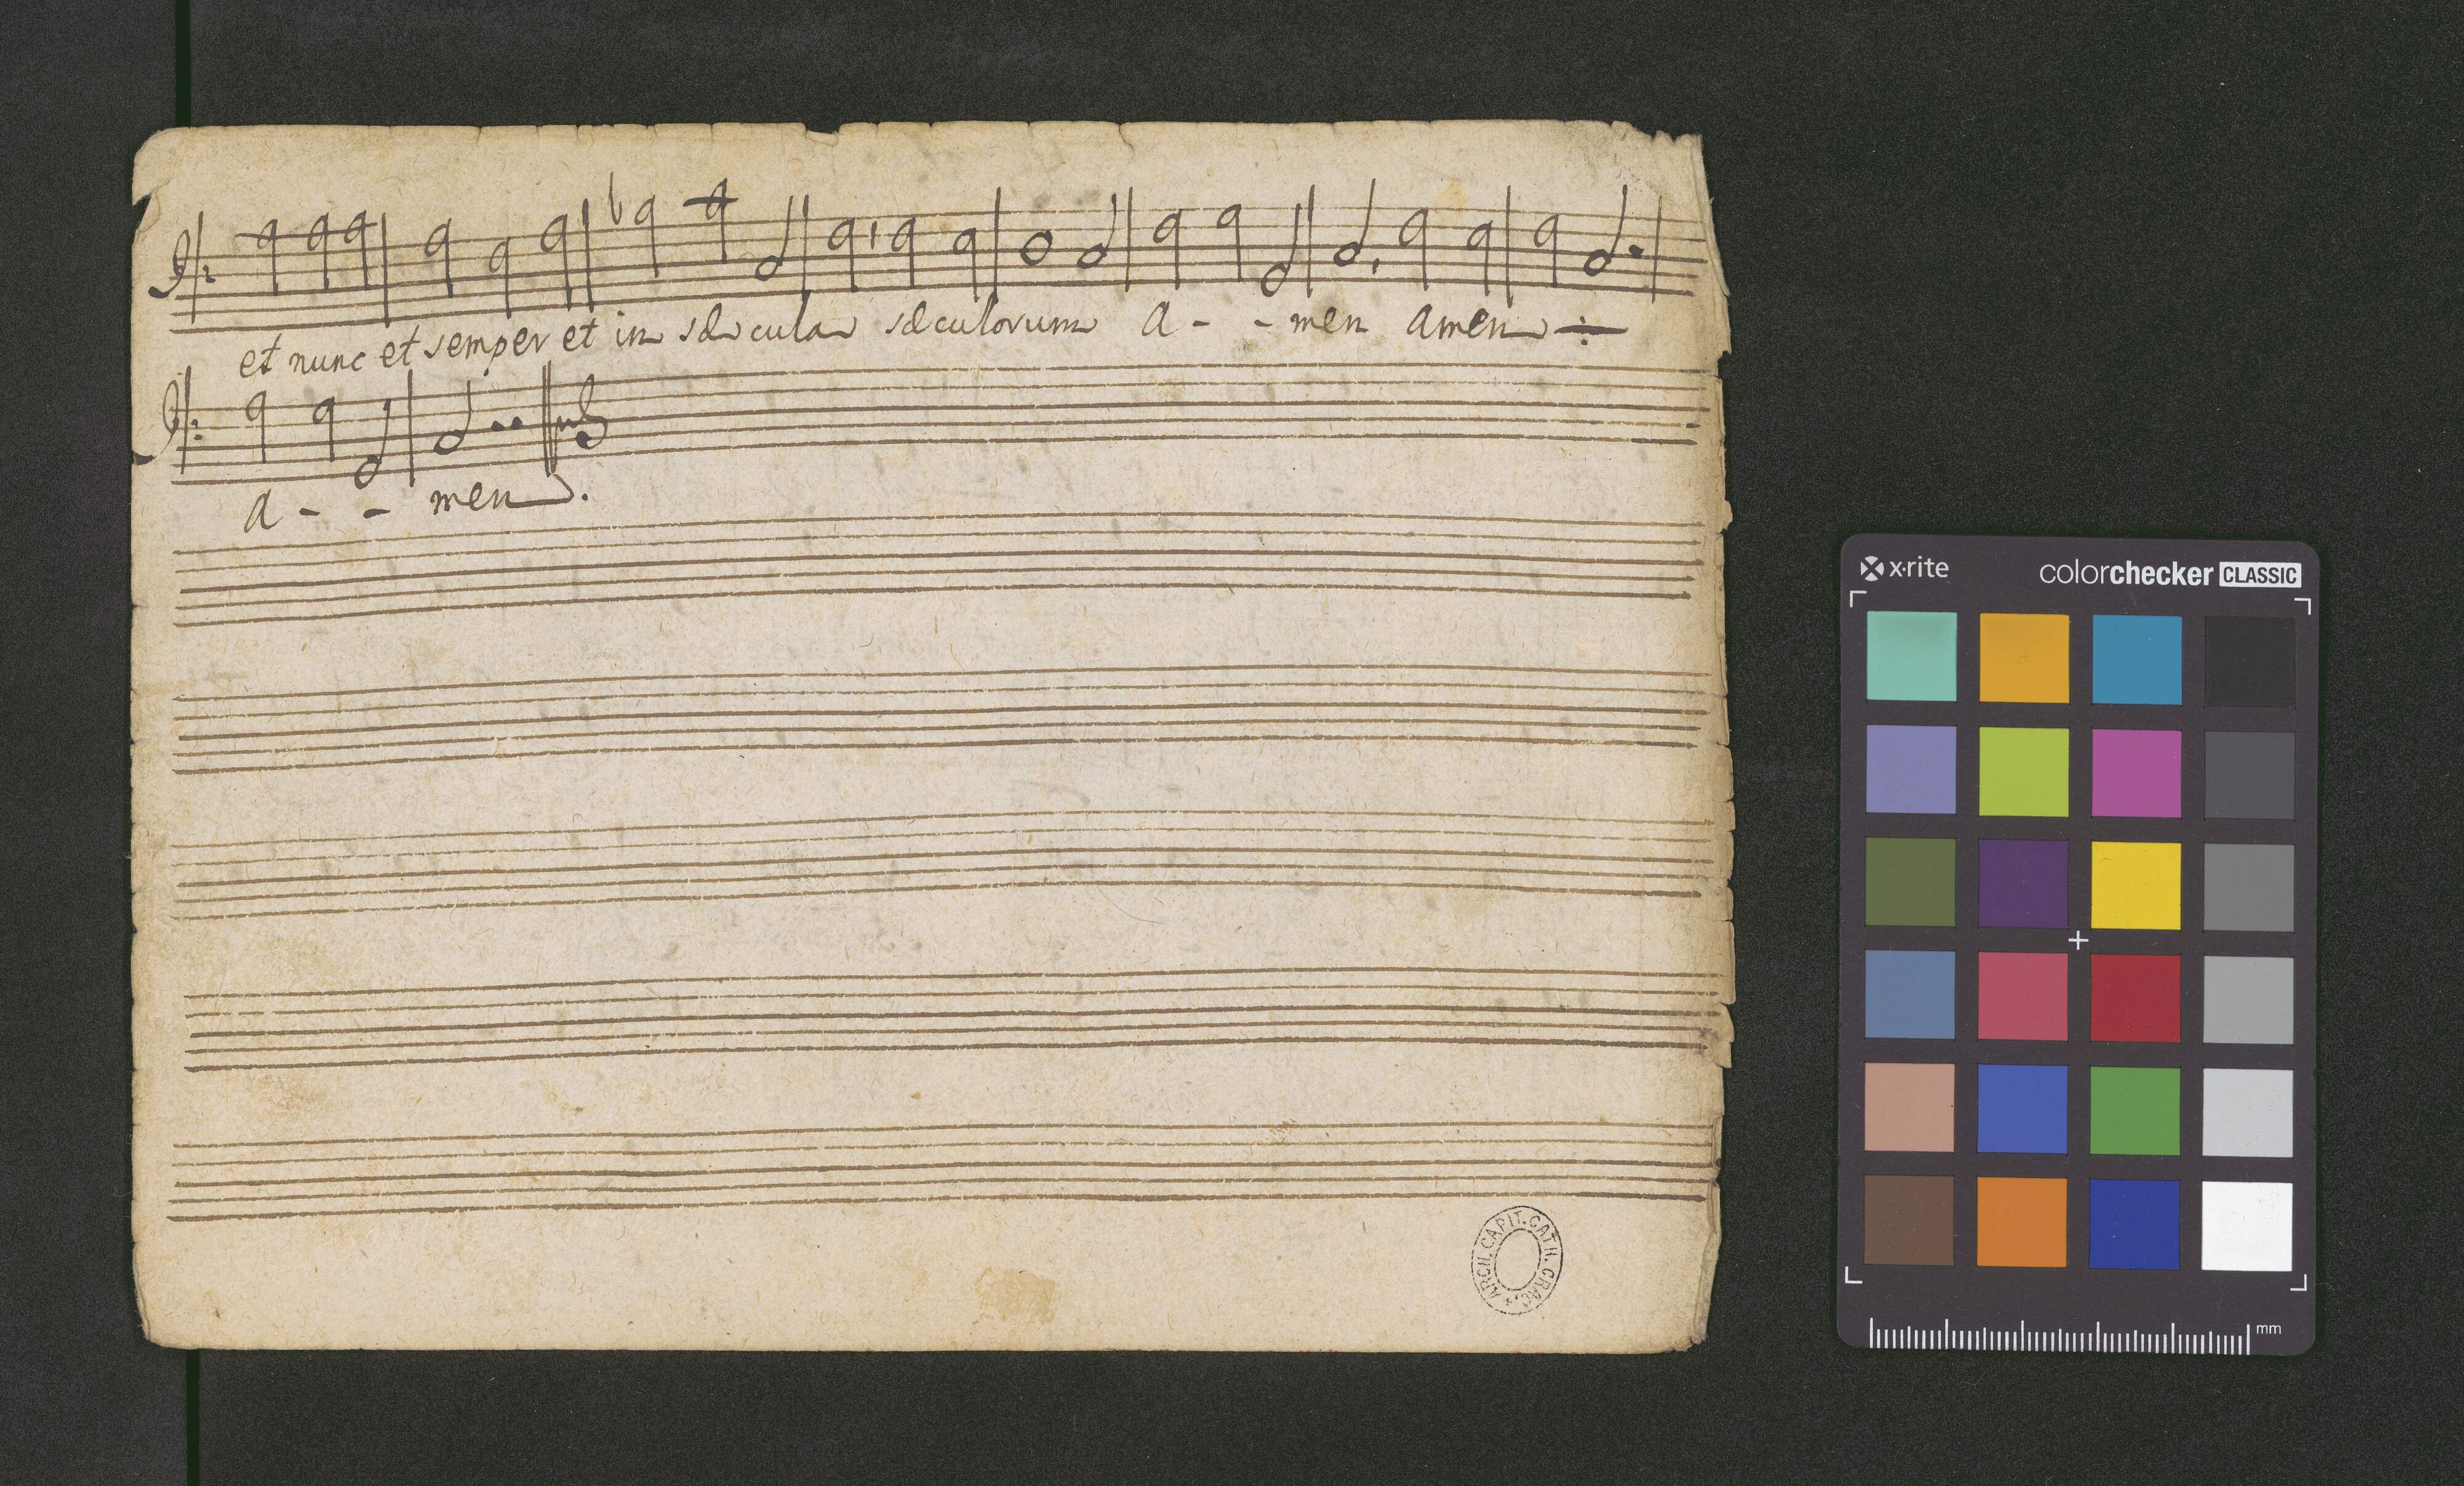 et nunc et semper et in sæcula sæculorum a - - men amen ÷
a - - men.
x·rite colorchecker CLASSIC
mm
ARCH. CAPIT. CATH. CRAC.